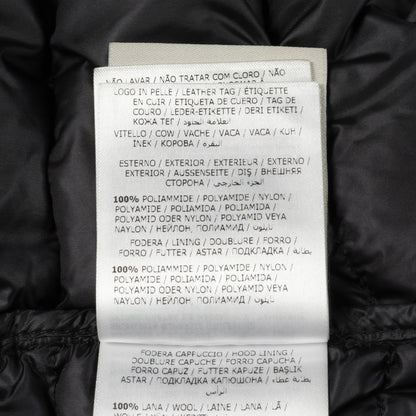 NÃO LAVAR / NÃO TRATAR COM CLORO / NÃO
LOGO IN PELLE / LEATHER TAG / ÉTIQUETTE
EN CUIR / ETIQUETA DE CUERO / TAG DE
COURO / LEDER-ETIKETTE / DERI ETIKETI /
КОЖА ТЕГ / العلامة الجلدية
VITELLO / COW / VACHE / VACA / VACA / KUH /
INEK / КОРОВА / البقرة
ESTERNO / EXTERIOR / EXTERIEUR / EXTERNO /
EXTERIOR / AUSSENSEITE / DIŞ / ВНЕШНЯЯ
СТОРОНА / الجزء الخارجي
100% POLIAMMIDE / POLYAMIDE / NYLON /
POLYAMIDE / POLIAMIDA / POLIAMIDA /
POLYAMID ODER NYLON / POLYAMID VEYA
NAYLON / НЕЙЛОН, ПОЛИАМИД / نايلون
FODERA / LINING / DOUBLURE / FORRO /
FORRO / FUTTER / ASTAR / ПОДКЛАДКА / بطانة
100% POLIAMMIDE / POLYAMIDE / NYLON /
POLYAMIDE / POLIAMIDA / POLIAMIDA /
POLYAMID ODER NYLON / POLYAMID VEYA
NAYLON / НЕЙЛОН, ПОЛИАМИД / نايلون
FODERA CAPPUCCIO / HOOD LINING /
DOUBLURE CAPUCHE / FORRO CAPUCHA /
FORRO CAPUZ / FUTTER KAPUZE / BAŞLIK
ASTARI / ПОДКЛАДКА КАПЮШОНА / بطانة غطاء
الرأس
100% LANA / WOOL / LAINE / LANA / LÃ /